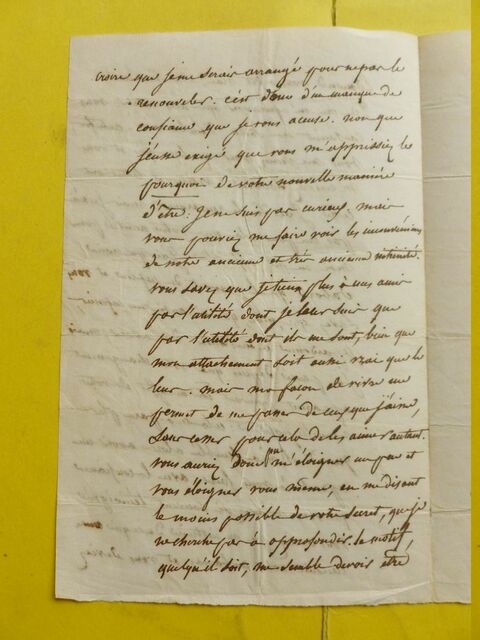 croire que je me serais arrangé pour ne pas le
renouveller. c'est donc d'un manque de
confiance que je vous accuse. non que
j'eusse exigé que vous m'apprissiez le
pourquoi de votre nouvelle manière
d'être: je ne suis pas curieux. mais
vous pouviez me faire voir les inconvéniens
de notre ancienne et très ancienne intimité.
vous savez que je tiens plus à mes amis
par l'utilité dont je leur suis que
par l'utilité dont ils me sont, bien que
mon attachement soit aussi vrai que le
leur. mais ma façon de vivre me
permet de me passer de ceux que j'aime,
sans cesser pour cela de les aimer autant.
vous auriez donc pu m'éloigner un peu et
vous éloigner vous même, en me disant
le moins possible de votre secret, que je
ne cherche pas à approfondir. le motif,
quelqu'il soit, me semble devoir être